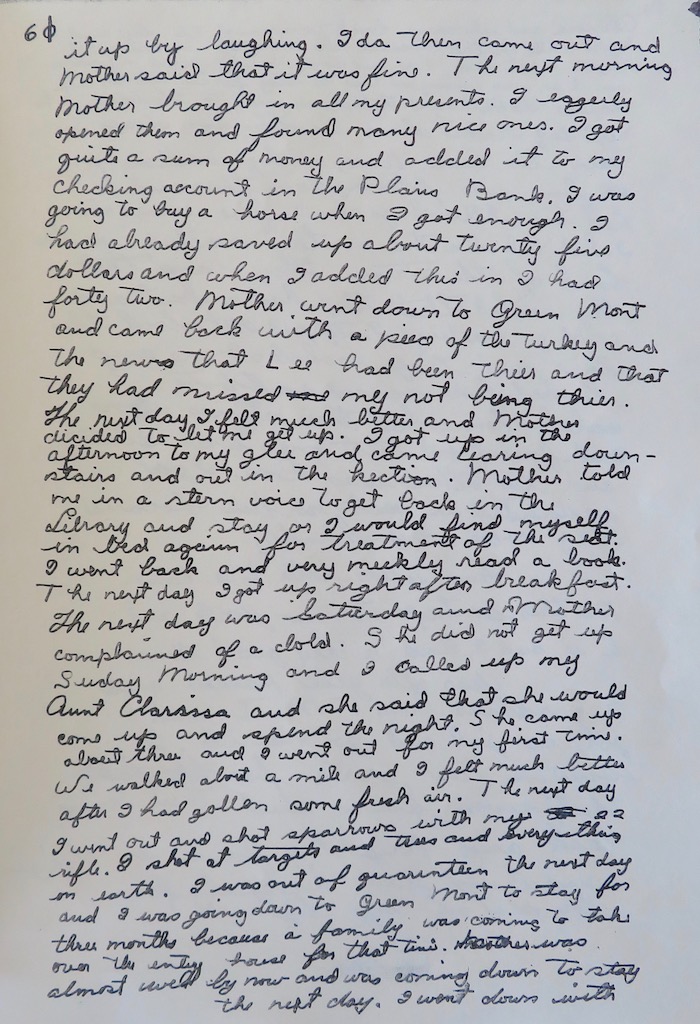 6
it up by laughing. Ida then came out and
Mother said that it was fine. The next morning
Mother brought in all my presents. I eggerly
opened them and found many nice ones. I got
quite a sum of money and added it to my
checking account in the Plains Bank. I was
going to buy a horse when I got enough. I
had already saved up about twenty five
dollars and when I added this in I had
forty two. Mother went down to Green Mont
and came back with a piece of the turkey and
the news that Lee had been thier and that
they had missed my not being thier.
The next day I felt much better and Mother
decided to let me get up. I got up in the
afternoon to my glee and came tearing down-
stairs and out in the kection. Mother told
me in a stern voice to get back in the
Library and stay or I would find myself
in bed again for treatment of the seat.
I went back and very meekly read a book.
The next day I got up right after breakfast.
The next day was Saturday aund Mother
complained of a clold. She did not get up
Suday Morning and I called up my
Aunt Clarissa and she said that she would
come up and spend the night. She came up
about three and I went out for my first time.
We walked about a mile and I felt much better
after I had gotten some fresh air. The next day
I went out and shot sparrows with my 22
rifle. I shot at targets and trees and everything
on earth. I was out of quarenteen the next day
and I was going down to Green Mont to stay for
three months because a family was coming to take
over the entry house for that time. Mother was
almost well by now and was coming down to stay
the next day. I went down with